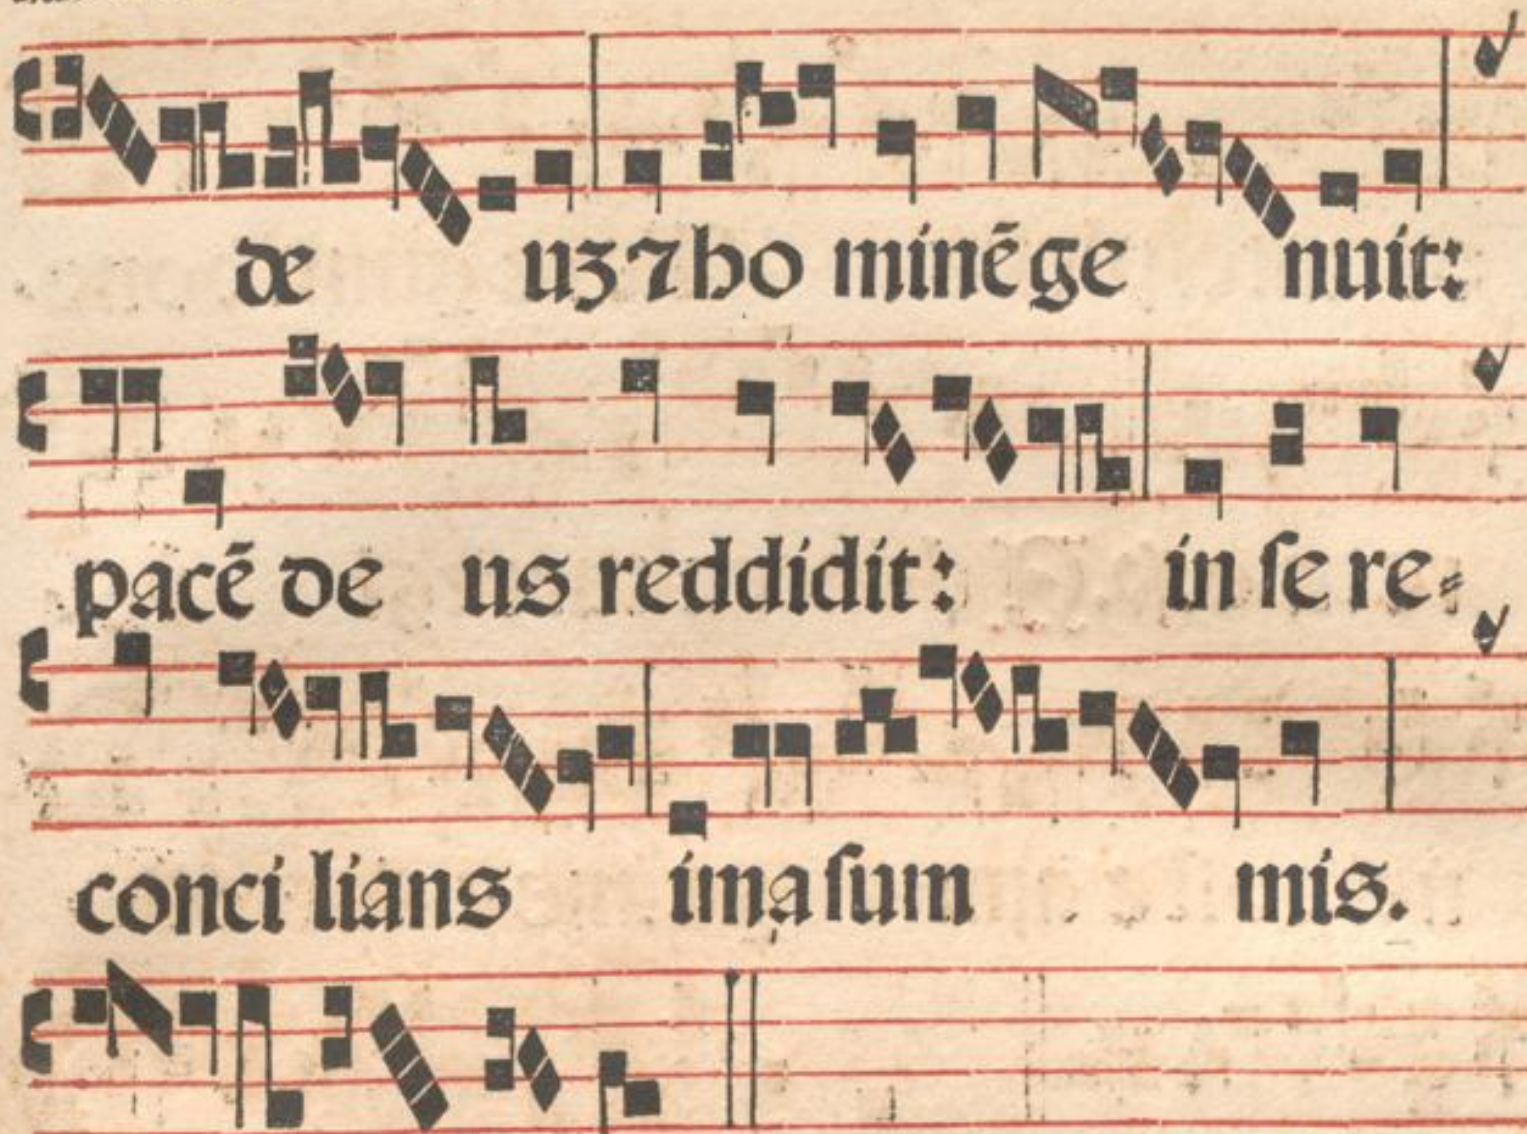 de uʒ ⁊ ho minē ge nuit:
pacē de us reddidit: in ſe re⸗
conci lians ima ſum mis.